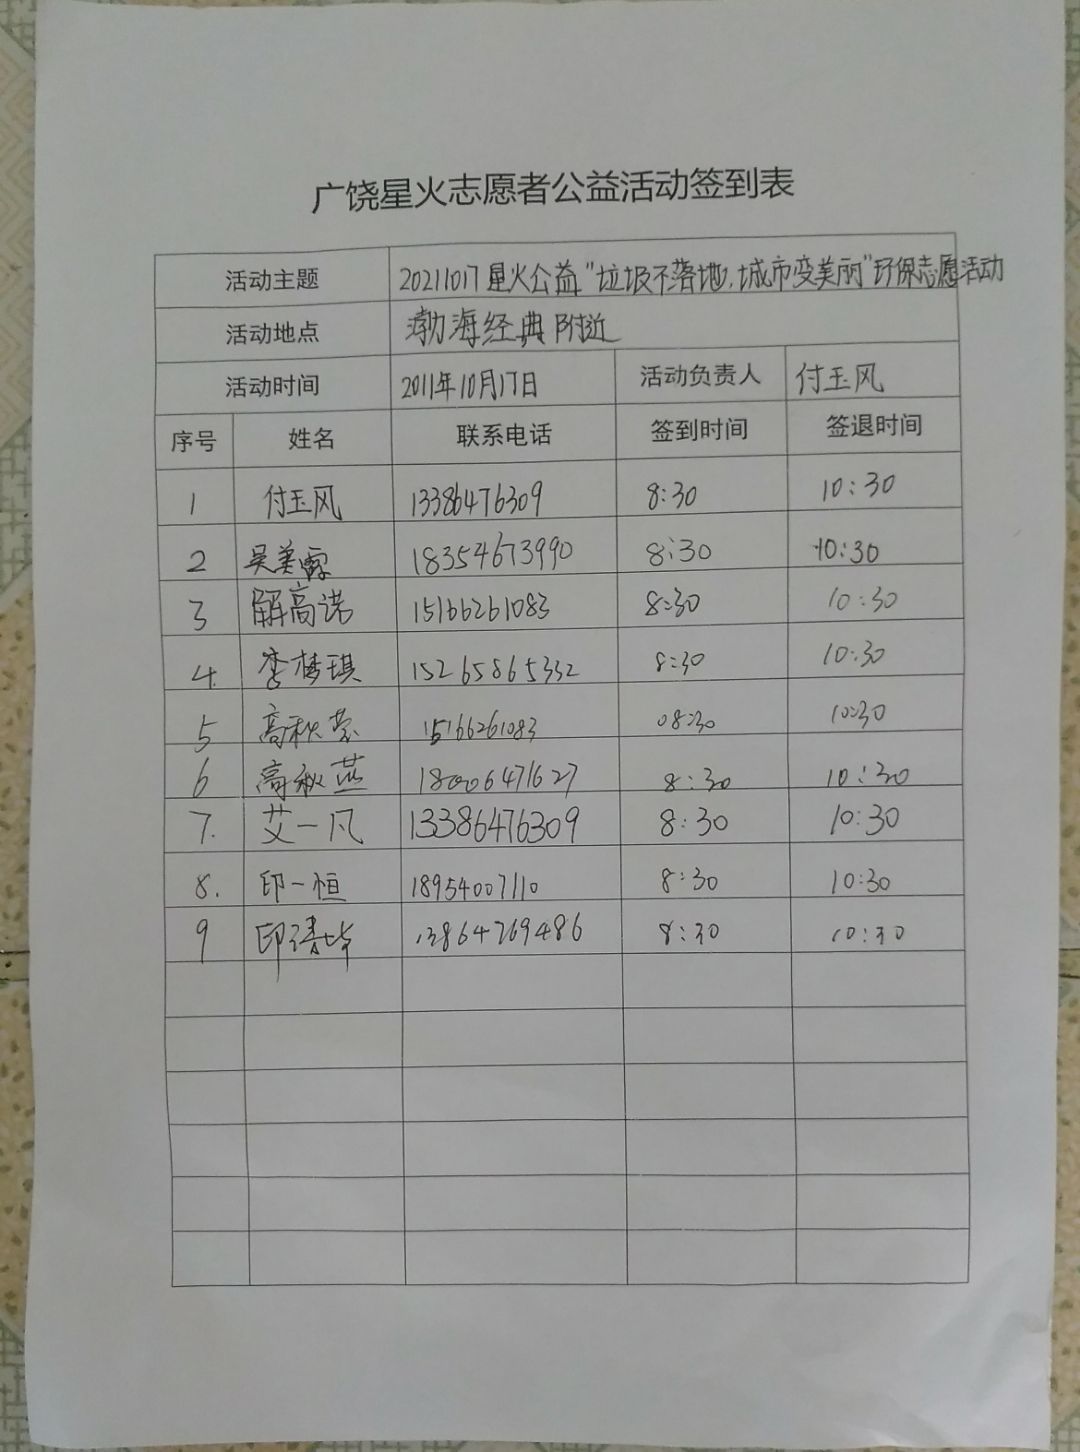 广饶星火志愿者公益活动签到表
活动主题 20211017星火公益"垃圾不落地,城市变美丽"环保志愿活动
活动地点 渤海经典附近
活动时间 2011年10月17日 活动负责人 付玉风
序号 姓名 联系电话 签到时间 签退时间
1 付玉风 13386476309 8:30 10:30
2 吴美霖 18354673990 8:30 10:30
3 解高诺 15166261083 8:30 10:30
4. 李梦琪 15265865332 8:30 10:30
5 高秋芸 15166261083 08:30 10:30
6 高秋燕 18006471627 8:30 10:30
7. 艾一凡 13386476309 8:30 10:30
8. 印一恒 18954007110 8:30 10:30
9 13864769486 8:30 10:30